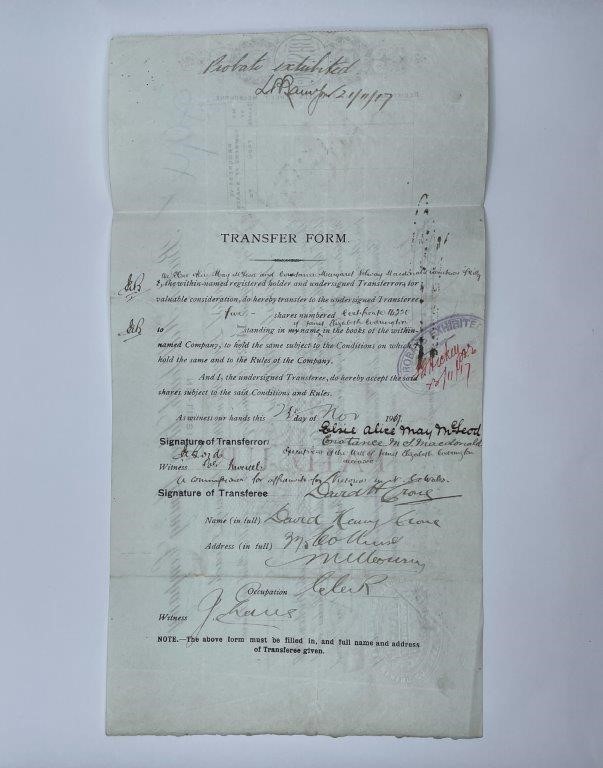 Probate exhibited
21/11/17
TRANSFER FORM.
We Elsie Alice May McLeod and Constance Margaret Macdonald
I, the within-named registered holder and undersigned Transferror, for
valuable consideration, do hereby transfer to the undersigned Transferee
five - shares numbered Certificate
of Janet Elizabeth
to standing in my name in the books of the within-
named Company, to hold the same subject to the Conditions on which
hold the same and to the Rules of the Company.
And I, the undersigned Transferee, do hereby accept the said
shares subject to the said Conditions and Rules.
PROBATE EXHIBITED
As witness our hands this day of Nov 1917
Elsie Alice May McLeod
Signature of Transferror: Constance M. S. Macdonald
of the Will of Janet Elizabeth
deceased
Witness
A commissioner for affidavits for Victoria in N. S. Wales.
Signature of Transferee David H Crone
Name (in full) David Henry Crone
Address (in full) Collins
Melbourne
Occupation Clerk
Witness
NOTE.—The above form must be filled in, and full name and address
of Transferee given.